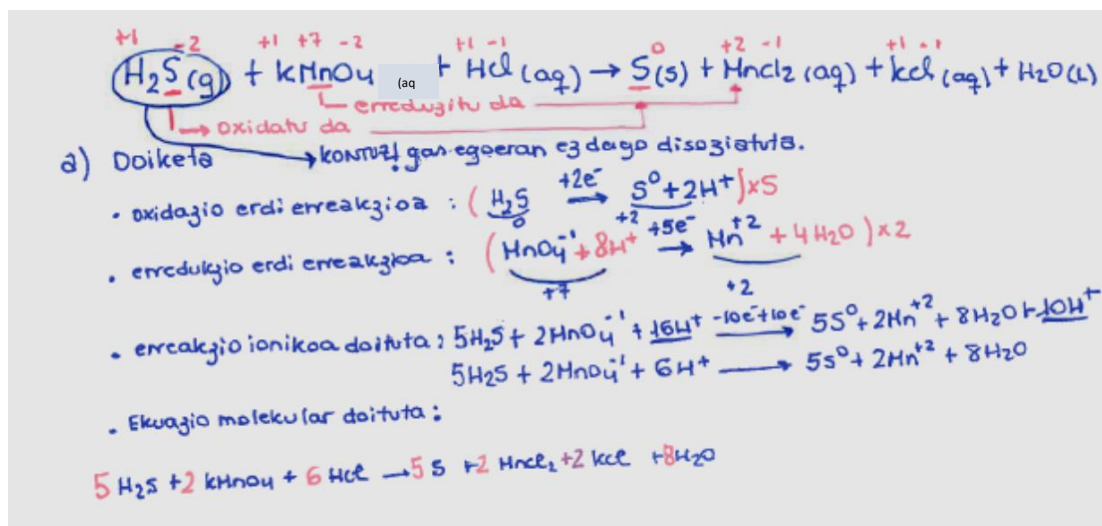 +1 -2 +1 +7 -2 +1 -1 0 +2 -1 +1 -1
H₂S (g) + KMnO₄ (aq + HCl (aq) → S(s) + MnCl₂ (aq) + KCl (aq) + H₂O(l)
erreduzitu da
oxidatu da
a) Doiketa → KONTUZ! gas egoeran ez dago disoziatuta.
• oxidazio erdi erreakzioa : ( H₂S +2e⁻ → S⁰ + 2H⁺ ) x5
0 +2
• erredukzio erdi erreakzioa : ( MnO₄⁻¹ + 8H⁺ +5e⁻ → Mn⁺² + 4H₂O ) x2
+7 +2
• erreakzio ionikoa doituta : 5H₂S + 2MnO₄⁻¹ + 16H⁺ -10e⁻+10e⁻ → 5S⁰ + 2Mn⁺² + 8H₂O + 10H⁺
5H₂S + 2MnO₄⁻¹ + 6H⁺ → 5S⁰ + 2Mn⁺² + 8H₂O
• Ekuazio molekular doituta :
5 H₂S + 2 KMnO₄ + 6 HCl → 5 S + 2 MnCl₂ + 2 KCl + 8H₂O